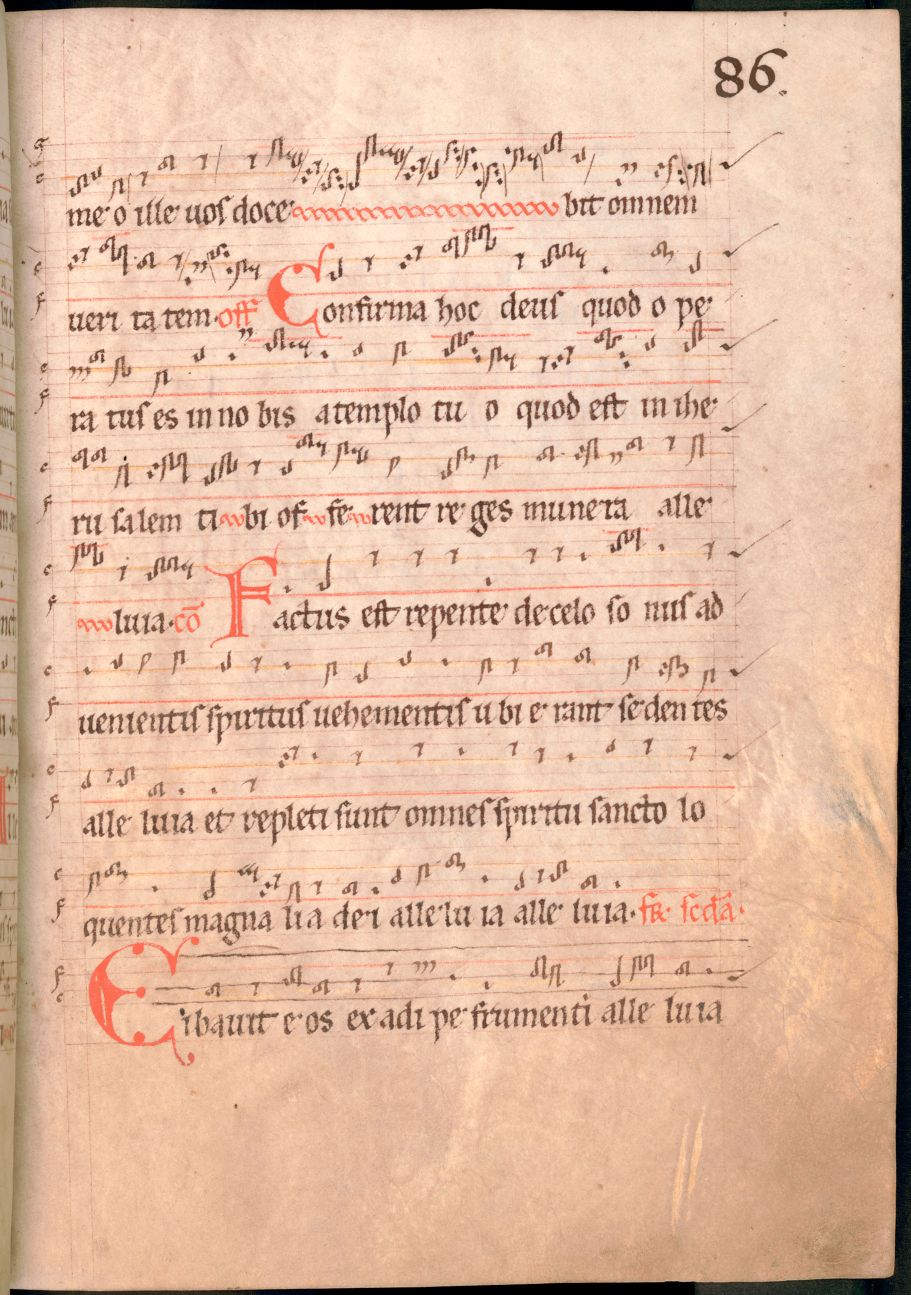 86.
me o ille uos doce bit omnem
ueri ta tem. off Confirma hoc deus quod o pe
ra tus es in no bis a templo tu o quod est in ihe
ru salem ti bi of fe rent re ges mune ra alle
luia. co Factus est repente de celo so nus ad
uenientis spiritus uehementis u bi e rant se den tes
alle luia et repleti sunt omnes spiritu sancto lo
quentes magna li a de i alle lu ia alle luia. fr scda.
Cibauit e os ex adi pe frumenti alle luia